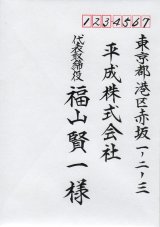 1234567
東京都港区赤坂一ノ二ノ三
平成株式会社
代表取締役
福山賢一様